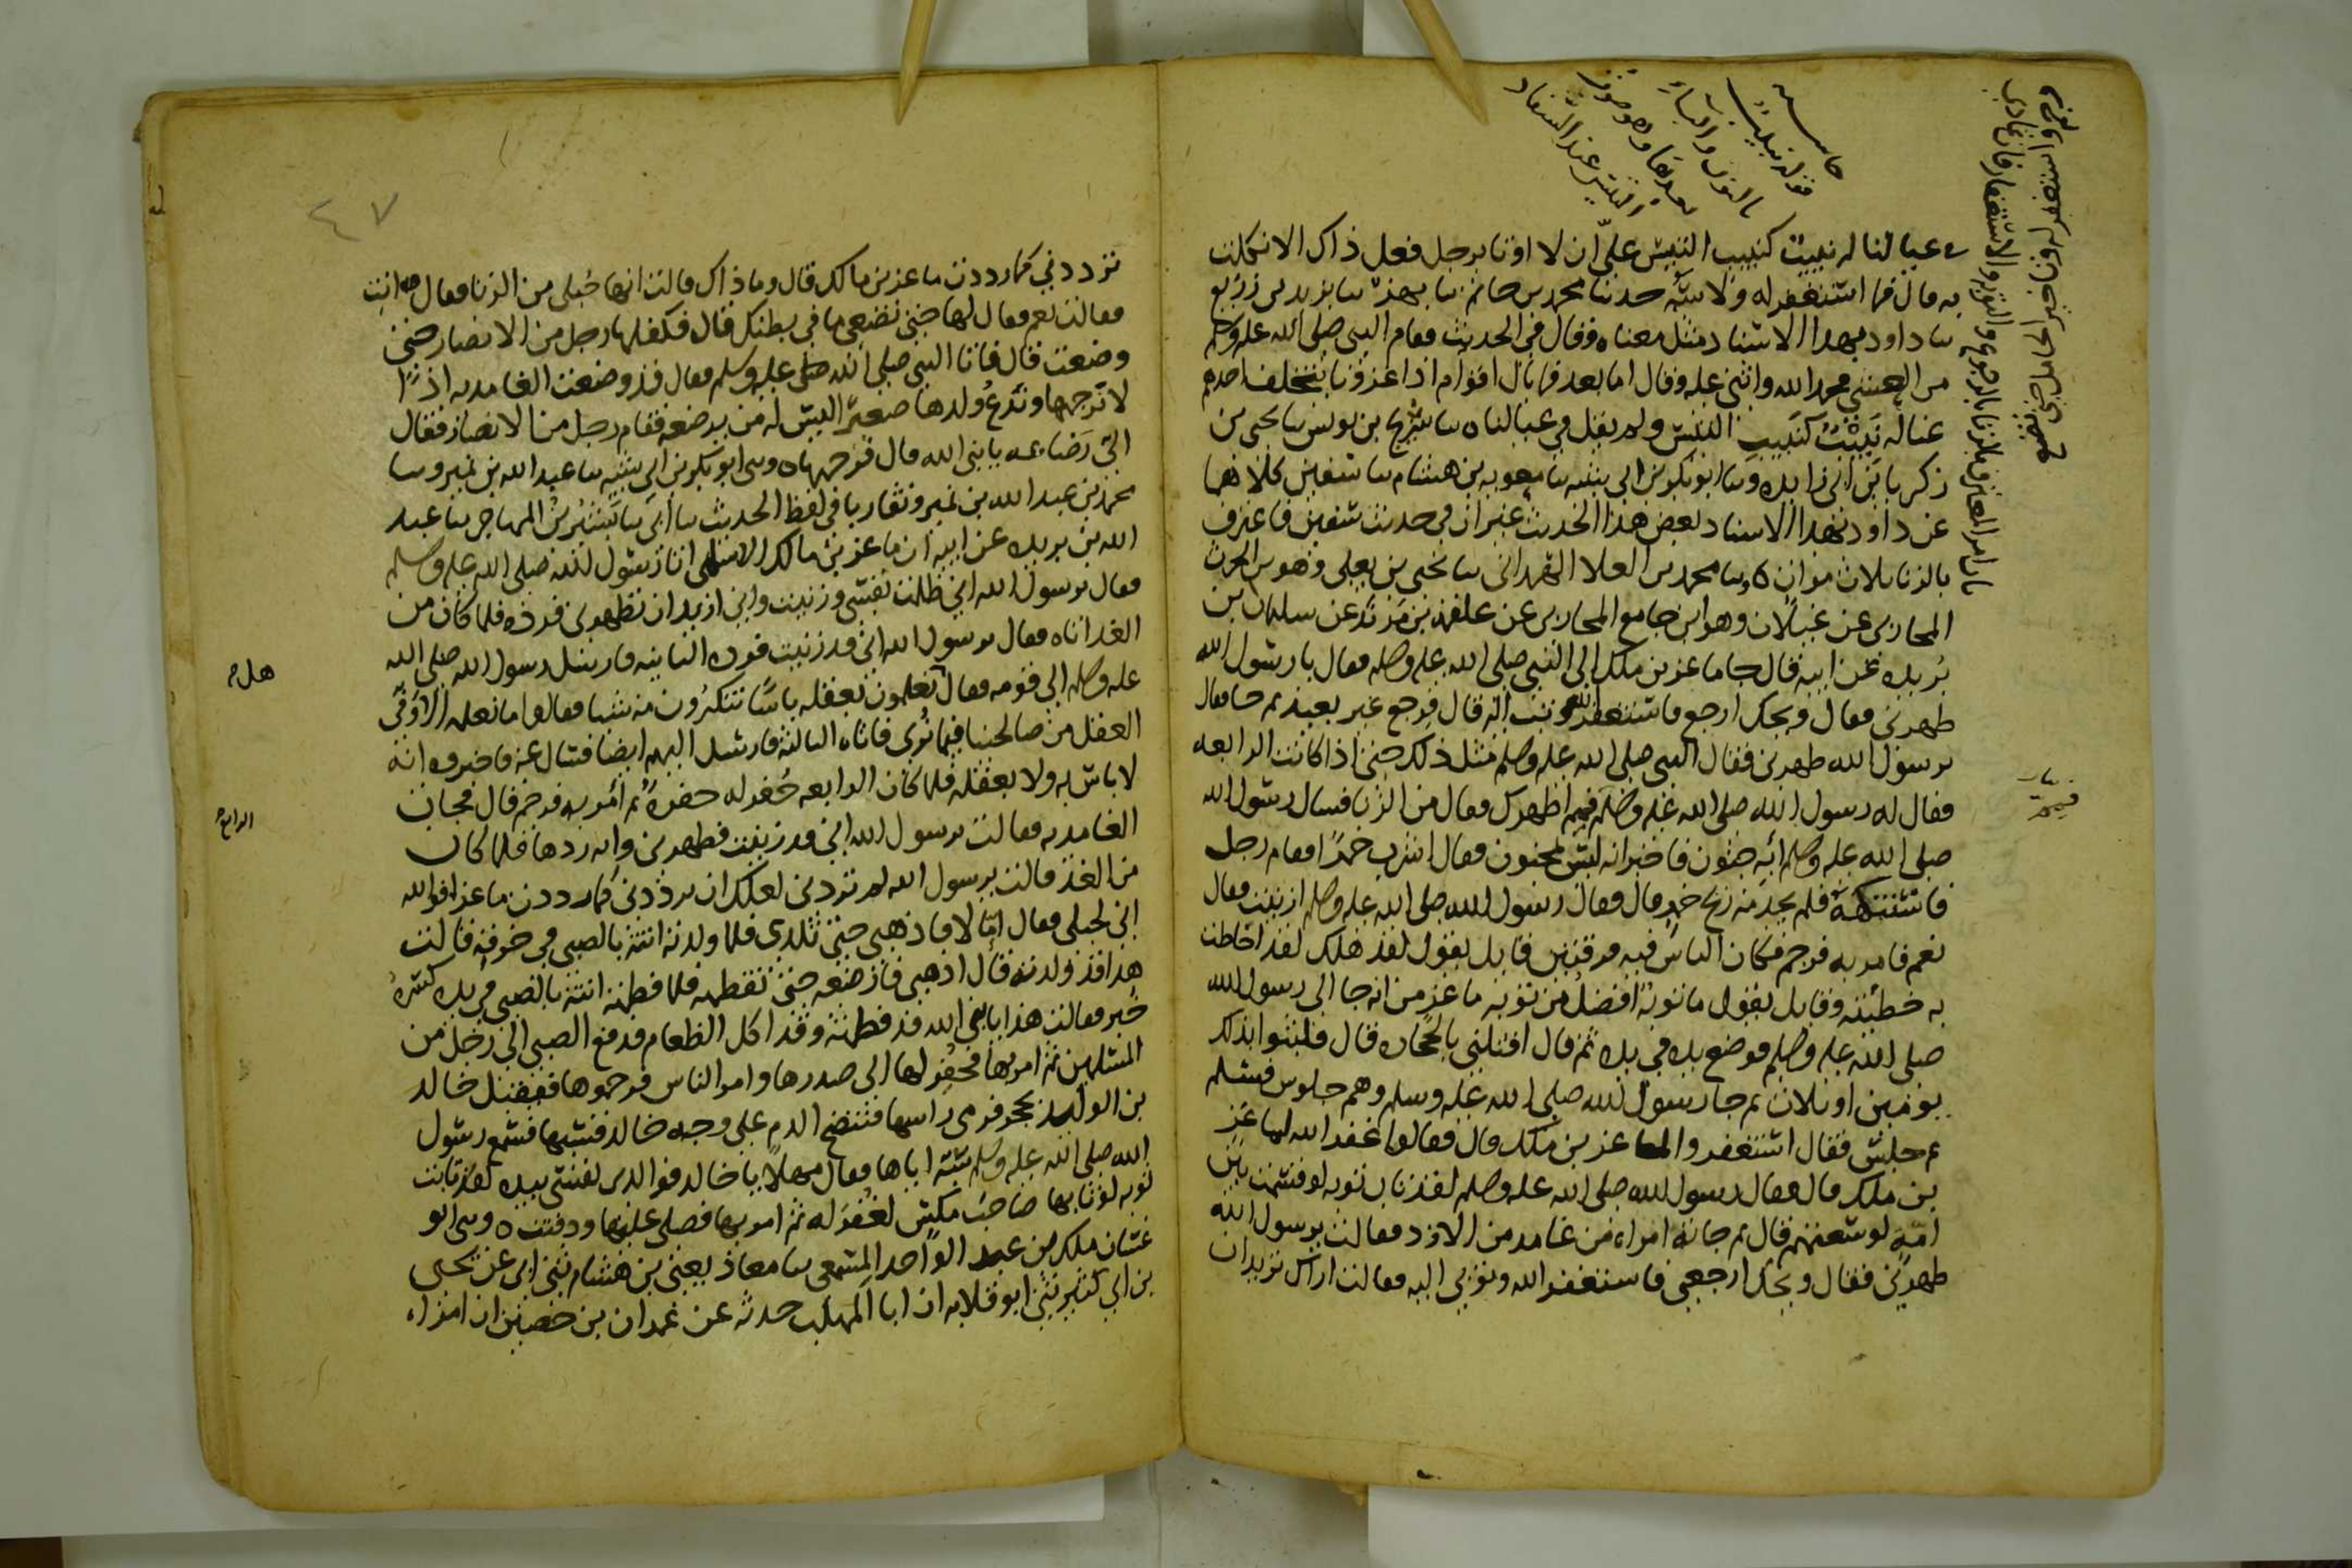 حاشية
قوله نبيب
بالنون والباء
بعدها وهو صوت
التيس عند السفاد
في عيالنا له نبيب كنبيب التيس عليّ ان لا اوتا برجل فعل ذاك الا نكلت
به قال فما استغفر له ولا سبّه حدثنا محمد بن حاتم ثنا بهز ثنا يزيد بن زريع
ثنا داود بهذا الاسناد مثل معناه وقال في الحديث فقام النبي صلى الله عليه وسلم
من العشي فحمد الله واثنى عليه وقال اما بعد فما بال اقوام اذا غزونا يتخلف احدهم
عنا له نبيب كنبيب التيس ولم يقل في عيالنا ه ثنا سريج بن يونس ثنا يحيى بن
زكريا بن ابي زايده وثنا ابو بكر بن ابي شيبه ثنا معويه بن هشام ثنا سفين كلاهما
عن داود بهذا الاسناد بعض هذا الحديث غير ان في حديث سفين فاعترف
بالزنا ثلاث مرات ه وثنا محمد بن العلا الهمداني ثنا يحيى بن يعلى وهو بن الحرث
المحاربي عن غيلان وهو ابن جامع المحاربي عن علقمه بن مرثد عن سليمان بن
بريده عن ابيه قال جا ماعز بن ملك الى النبي صلى الله عليه وسلم فقال يا رسول الله
طهرني فقال ويحك ارجع فاستغفر الله وتب اليه قال فرجع غير بعيد ثم جا فقال
يرسول الله طهرني فقال النبي صلى الله عليه وسلم مثل ذلك حتى اذا كانت الرابعه
فقال له رسول الله صلى الله عليه وسلم فيم اطهرك فقال من الزنا فسال رسول الله
صلى الله عليه وسلم ابه جنون فاخبر انه ليس بمجنون فقال اشرب خمرا فقام رجل
فاستنكهه فلم يجد منه ريح خمر قال فقال رسول الله صلى الله عليه وسلم ازنيت فقال
نعم فامر به فرجم فكان الناس فيه فرقتين قايل يقول لقد هلك لقد احاطت
به خطيئته وقايل يقول ما توبة افضل من توبة ماعز من انه جا الى رسول الله
صلى الله عليه وسلم فوضع يده في يده ثم قال اقتلني بالحجاره قال فلبثوا بذلك
يومين او ثلاث ثم جا رسول الله صلى الله عليه وسلم وهم جلوس فسلم
ثم جلس فقال استغفروا لماعز بن ملك قال فقالوا غفر الله لماعز
بن ملك قال فقال رسول الله صلى الله عليه وسلم لقد تاب توبه لو قسمت بين
امة لوسعتهم قال ثم جاته امراه من غامد من الازد فقالت يرسول الله
طهرني فقال ويحك ارجعي فاستغفر الله وتوبي اليه فقالت اراك تريد ان
٤٧
ترددني كما رددت ماعز بن مالك قال وما ذاك قالت انها حبلى من الزنا فقال انتِ
فقالت نعم فقال لها حتى تضعي ما في بطنك قال فكفلها رجل من الانصار حتى
وضعت قال فاتا النبي صلى الله عليه وسلم فقال قد وضعت الغامديه اذًا
لا نرجمها وندع ولدها صغيرًا ليس له من يرضعه فقام رجل من الانصار فقال
اليّ رضاعه يا نبي الله قال فرجمها ه وثنى ابو بكر بن ابي شيبه ثنا عبد الله بن نمير وثنا
محمد بن عبد الله بن نمير وتقاربا في لفظ الحديث ثنا ابي ثنا بشير بن المهاجر ثنا عبد
الله بن بريده عن ابيه ان ماعز بن مالك الاسلمي اتا رسول الله صلى الله عليه وسلم
فقال يرسول الله اني ظلمت نفسي وزنيت واني اريد ان تطهرني فرده فلما كان من
الغد اتاه فقال يرسول الله اني قد زنيت فرده الثانيه فارسل رسول الله صلى الله
عليه وسلم الى قومه فقال تعلمون بعقله باسًا تنكرون منه شيا فقالوا ما نعلمه الا وفيّ
العقل من صالحينا فيما نرى فاتاه الثالثه فارسل اليهم ايضا فسال عنه فاخبروه انه
لا باس به ولا بعقله فلما كان الرابعه حفر له حفرةً ثم امر به فرجم قال فجات
الغامديه فقالت يرسول الله اني قد زنيت فطهرني وانه ردها فلما كان
من الغد قالت يرسول الله لم تردني لعلك ان تردني كما رددت ماعزا فوالله
اني لحبلى فقال امّا لا فاذهبي حتى تلدي فلما ولدته اتته بالصبي في خرقه قالت
هذا قد ولدته قال اذهبي فارضعيه حتى تفطمه فلما فطمته اتته بالصبي في يده كسرةُ
خبز فقالت هذا يا نبي الله قد فطمته وقد اكل الطعام فدفع الصبي الى رجل من
المسلمين ثم امر بها فحفر لها الى صدرها وامر الناس فرجموها فيقبل خالد
بن الوليد بحجر فرمى راسها فتنضح الدم على وجه خالد فسبها فسمع رسول
الله صلى الله عليه وسلم سبّه اياها فقال مهلًا يا خالد فوالذي نفسي بيده لقد تابت
توبه لو تابها صاحب مكس لغفر له ثم امر بها فصلى عليها ودفنت ه وثنى ابو
غسان ملك بن عبد الواحد المسمعي ثنا معاذ يعني بن هشام ثنى ابي عن يحيى
بن ابي كثير ثنى ابو قلابه ان ابا المهلب حدثه عن عمران بن حصين ان امراه
هل
الرابعة